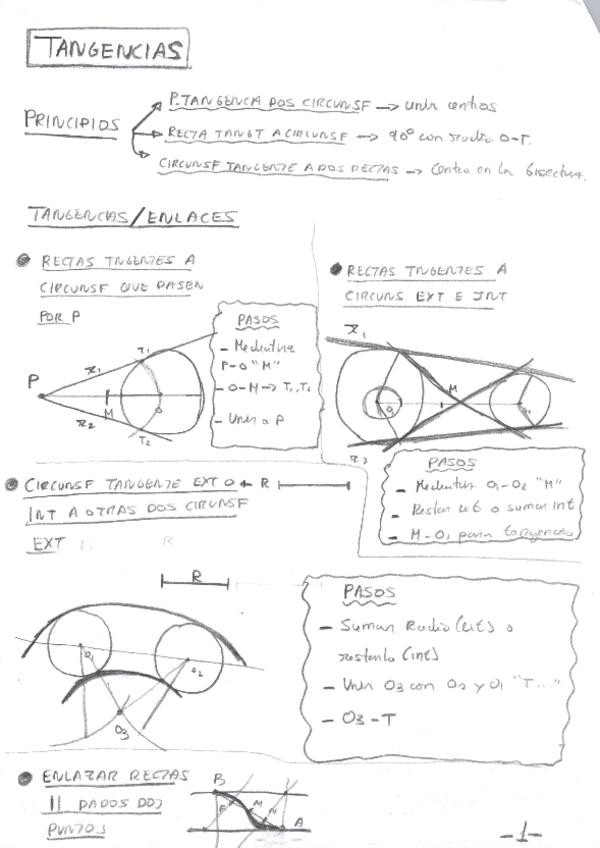 TANGENCIAS
PRINCIPIOS
P. TANGENCIA DOS CIRCUNSF → unir centros
RECTA TANGT A CIRCUNSF → 90° con radio O-T.
CIRCUNSF TANGENTE A DOS RECTAS → Centro en la bisectriz.
TANGENCIAS/ENLACES
RECTAS TNGENTES A
CIRCUNSF QUE PASEN
POR P
PASOS
- Mediatriz
P-O "M"
- O-M → T1, T2
- Unir a P
P
M
O
T1
T2
r1
r2
RECTAS TNGENTES A
CIRCUNS EXT E INT
r1
r2
M
O1
O2
PASOS
- Mediatriz O1-O2 "M"
- Restar ext o sumar int
- M-O1 para tangencias
CIRCUNSF TANGENTE EXT O ← R
INT A OTRAS DOS CIRUNSF
EXT
R
O1
O2
O3
PASOS
- Sumar Radio (ext) o
restarlo (int)
- Unir O3 con O2 y O1 "T..."
- O3-T
ENLAZAR RECTAS
|| DADOS DOS
PUNTOS
B
F
M
N
A
-1-